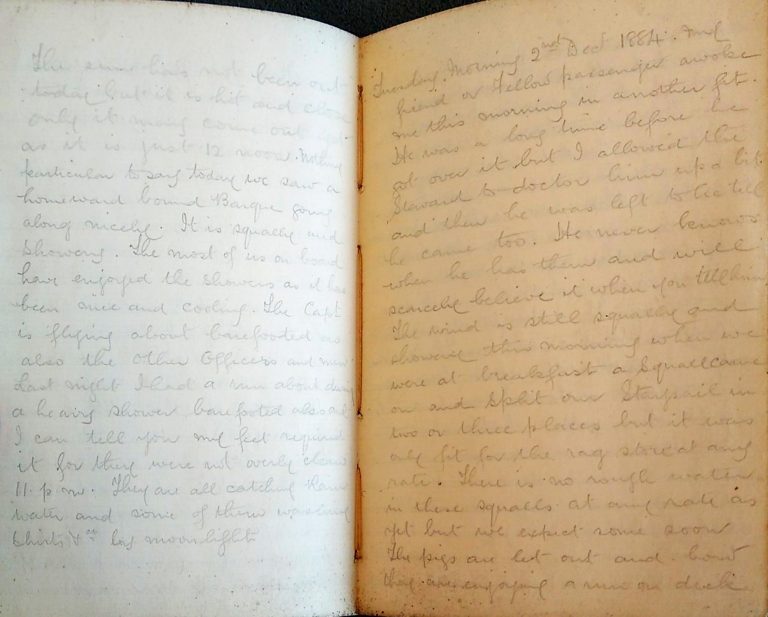 The sun has not been out
today but it is hot and close
only it may come out yet
as it is just 12 noon. Nothing
particular to say today we saw a
homeward bound Barque going
along nicely. It is squally and
Showery. The most of us on board
have enjoyed the showers as it has
been nice and cooling. The Capt
is flying about barefooted as
also the other Officers and men
Last night I had a run about during
a heavy shower barefooted also and
I can tell you my feet required
it for they were not overly clean
11. p.m. They are all catching Rain
water and some of them washing
Shirts &ct by moonlight
Tuesday. Morning 2nd Decr 1884. My
friend or Fellow passenger awoke
me this morning in another fit.
He was a long time before he
got over it but I allowed the
Steward to doctor him up a bit
and then he was left to lie till
he came too. He never knows
when he has them and will
scarcely believe it when you tell him
The wind is still squally and
showery this morning when we
were at breakfast a Squall came
on and Split our Staysail in
two or three places but it was
only fit for the rag store at any
rate. There is no rough water
in these squalls at any rate as
yet but we expect some soon
The pigs are let out and how
they are enjoying a run on deck